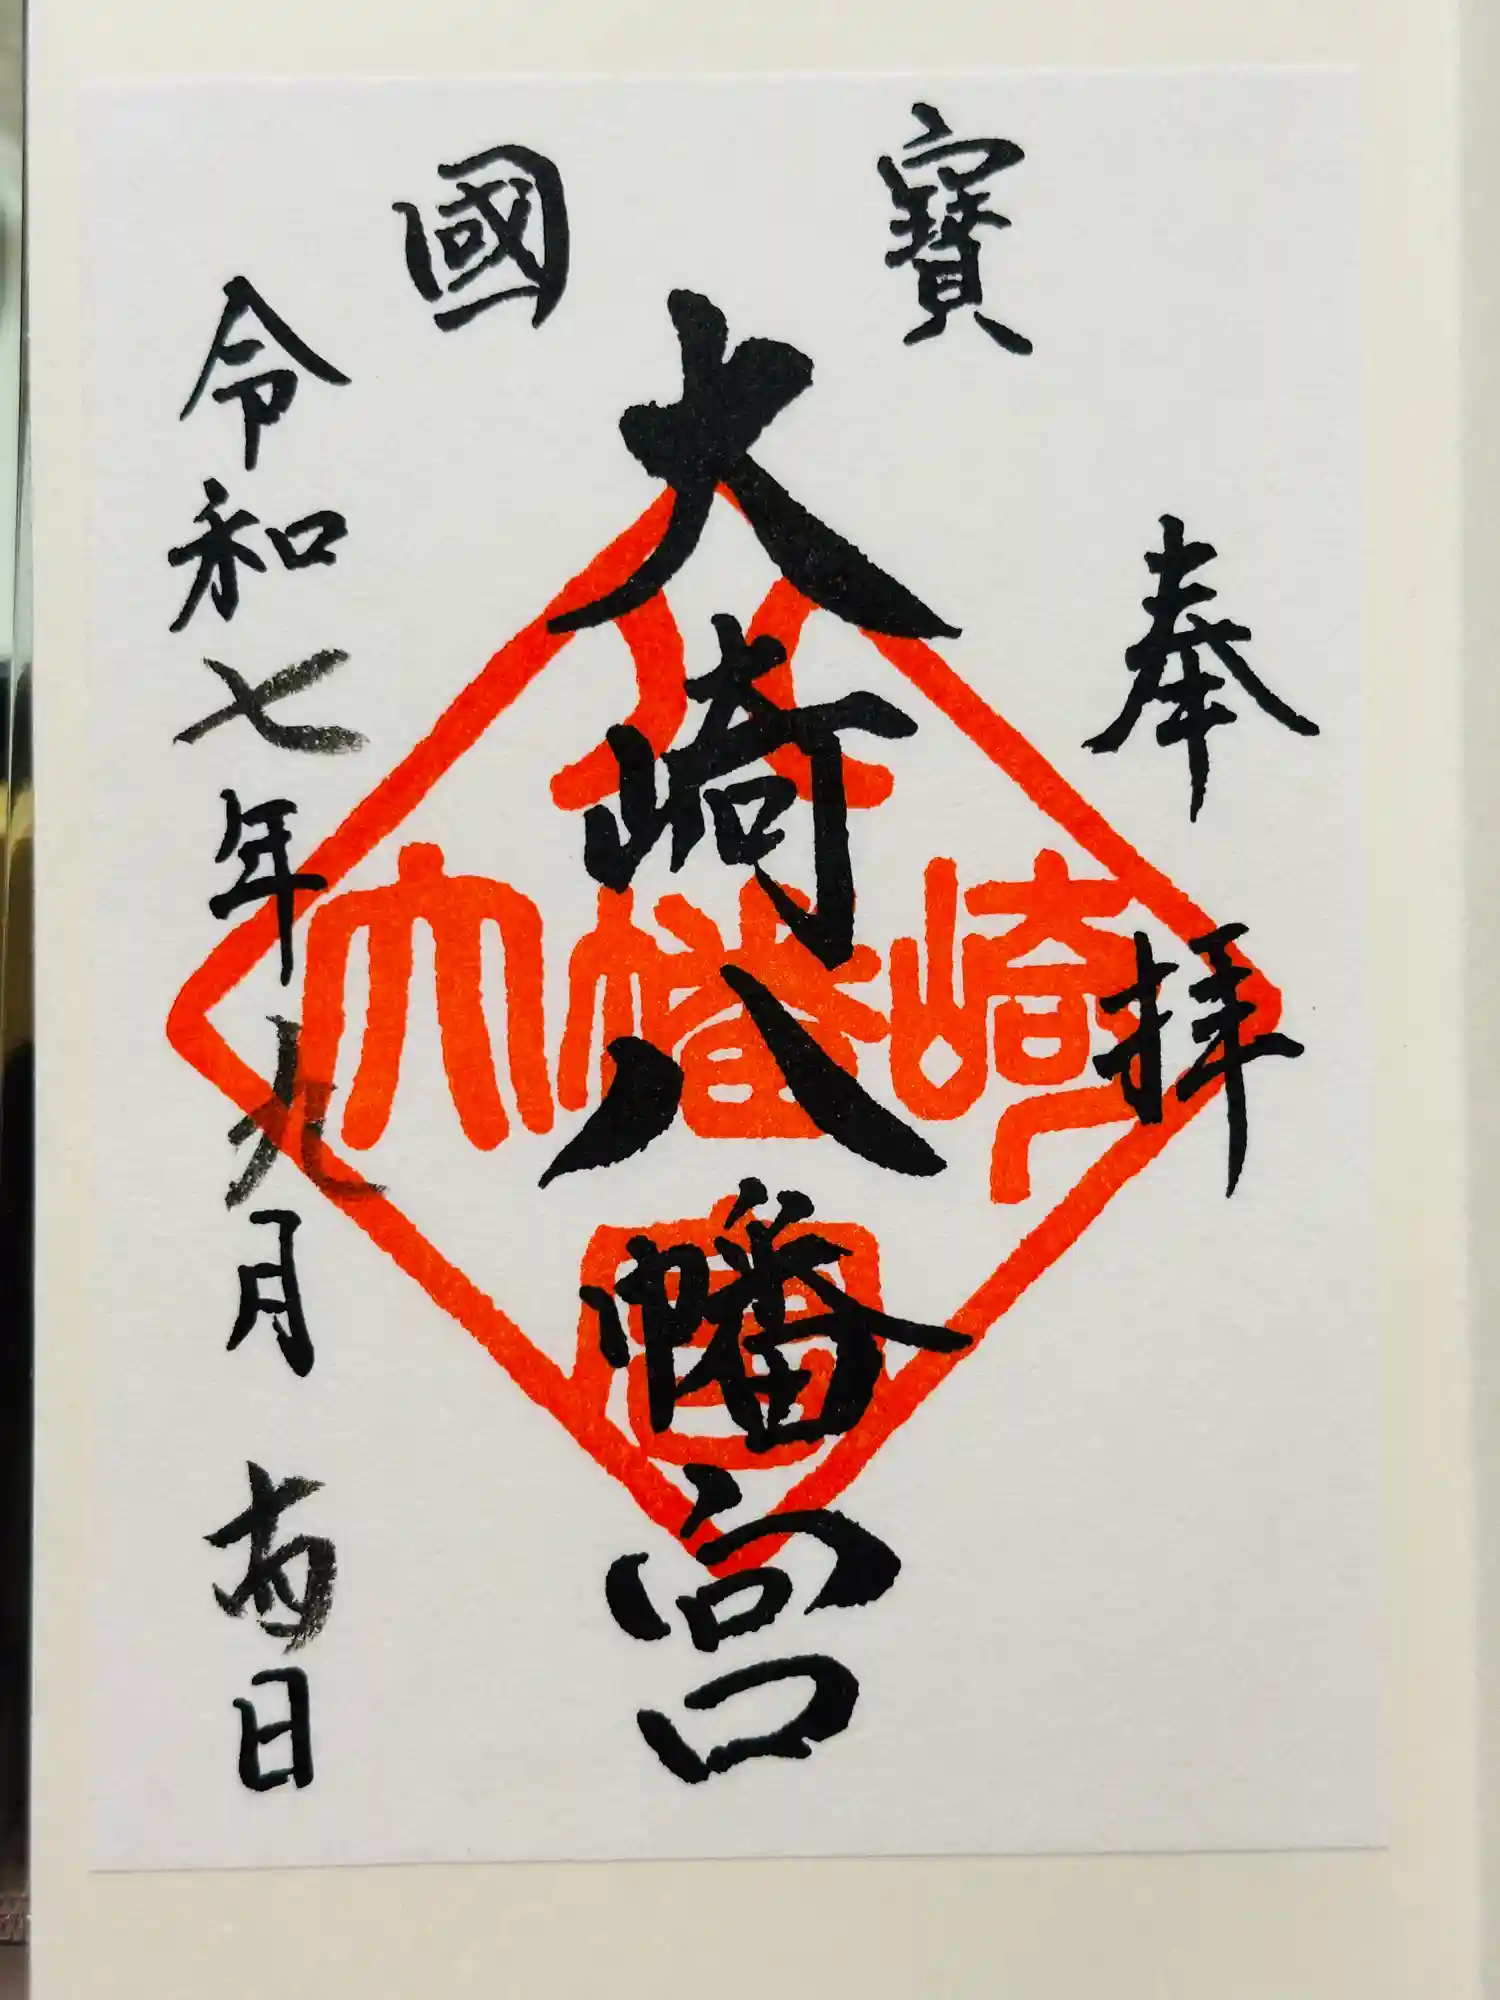 奉拝
國寶
大崎八幡宮
令和七年九月 日
八
大幡崎
宮